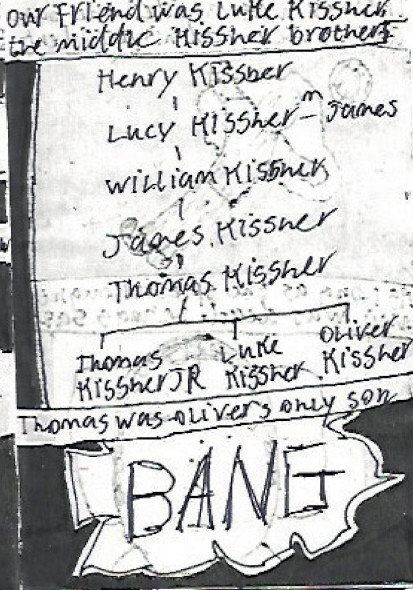 our Friend was Luke Kissner
the middle Kissher brothers
Henry Kissber
Lucy Kissher - m James
William Kissner
James Kissner
Thomas Kissher
Thomas Luke Oliver
Kissher JR Kissher Kissher
Thomas was Olivers only son
BANG